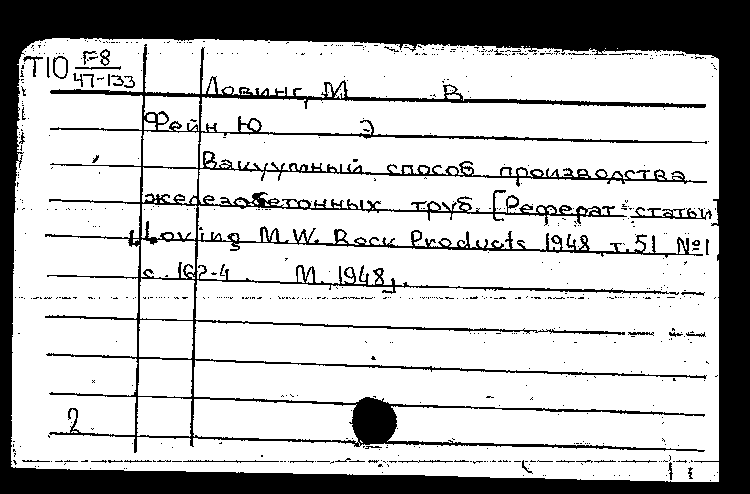 Т10 Г-8
47-133
Ловинг, М В
Фейн, Ю Э
Вакуумный способ производства
железобетонных труб. [Реферат статьи
Loving M.W. Rock Products 1948 т.51 №1,
с. 162-4. М., 1948].
2